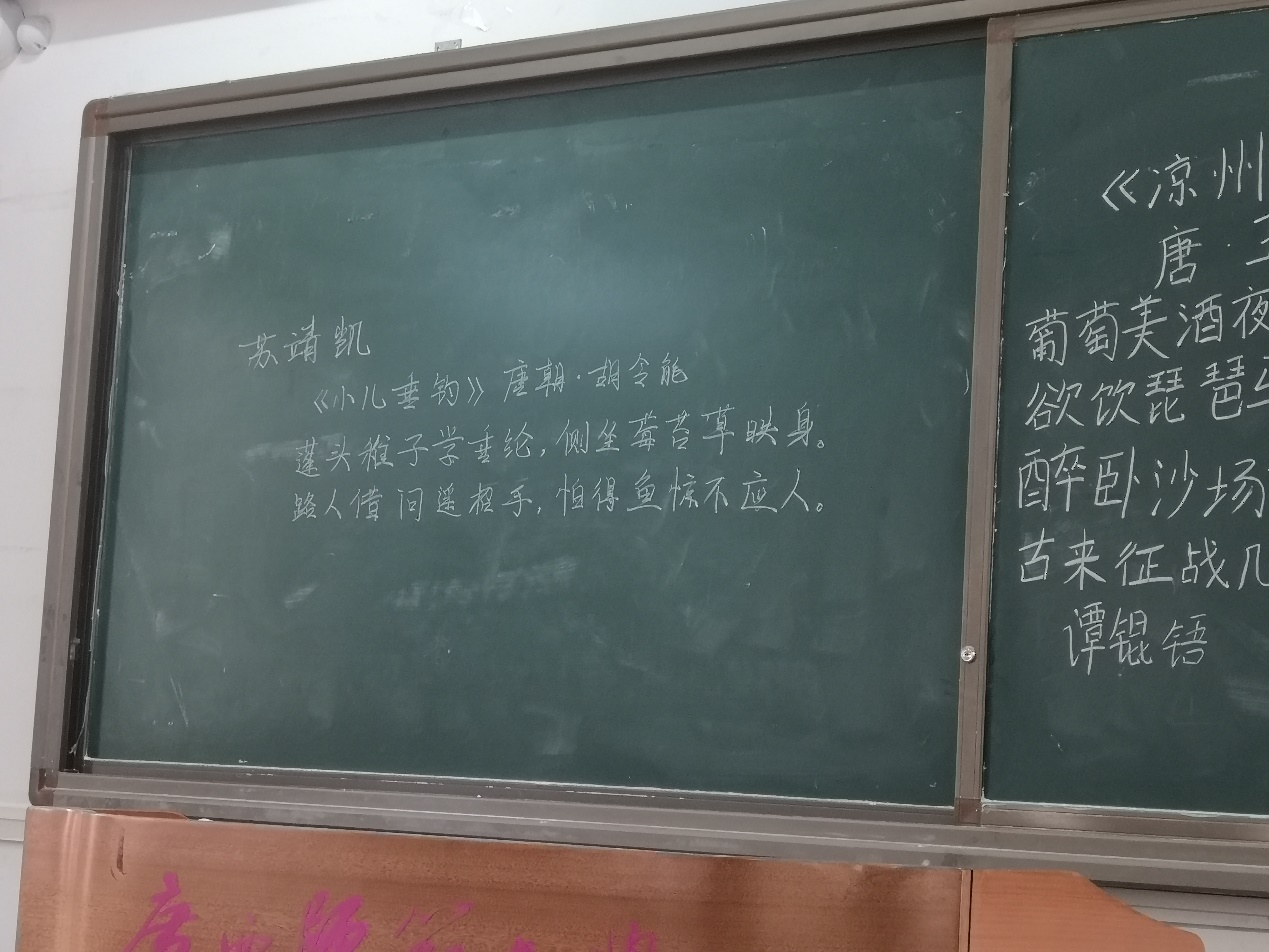 苏靖凯
《小儿垂钓》唐朝·胡令能
蓬头稚子学垂纶，侧坐莓苔草映身。
路人借问遥招手，怕得鱼惊不应人。
《凉州
唐·王
葡萄美酒夜
欲饮琵琶
醉卧沙场
古来征战几
谭锟铻